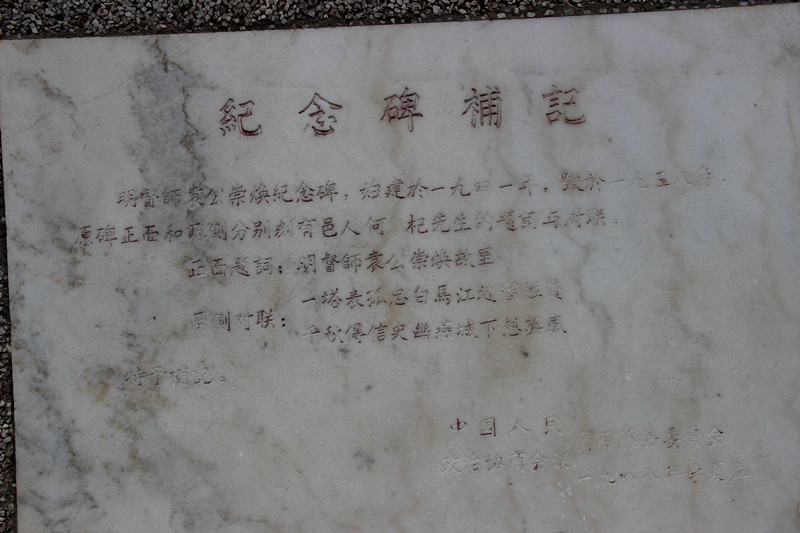 紀念碑補記
明督師袁公崇焕紀念碑，始建於一九四一年，毀於一九五八年，
原碑正面和兩側分别刻有邑人何 杞先生的题詞与对联。
正面题詞：明督師袁公崇焕故里
一塔表孤忠白馬江
两側对联：
千秋傳信史幽燕城下想英風
特予補記。
中国人民
政治协商会议
委員会
一九八八年 立